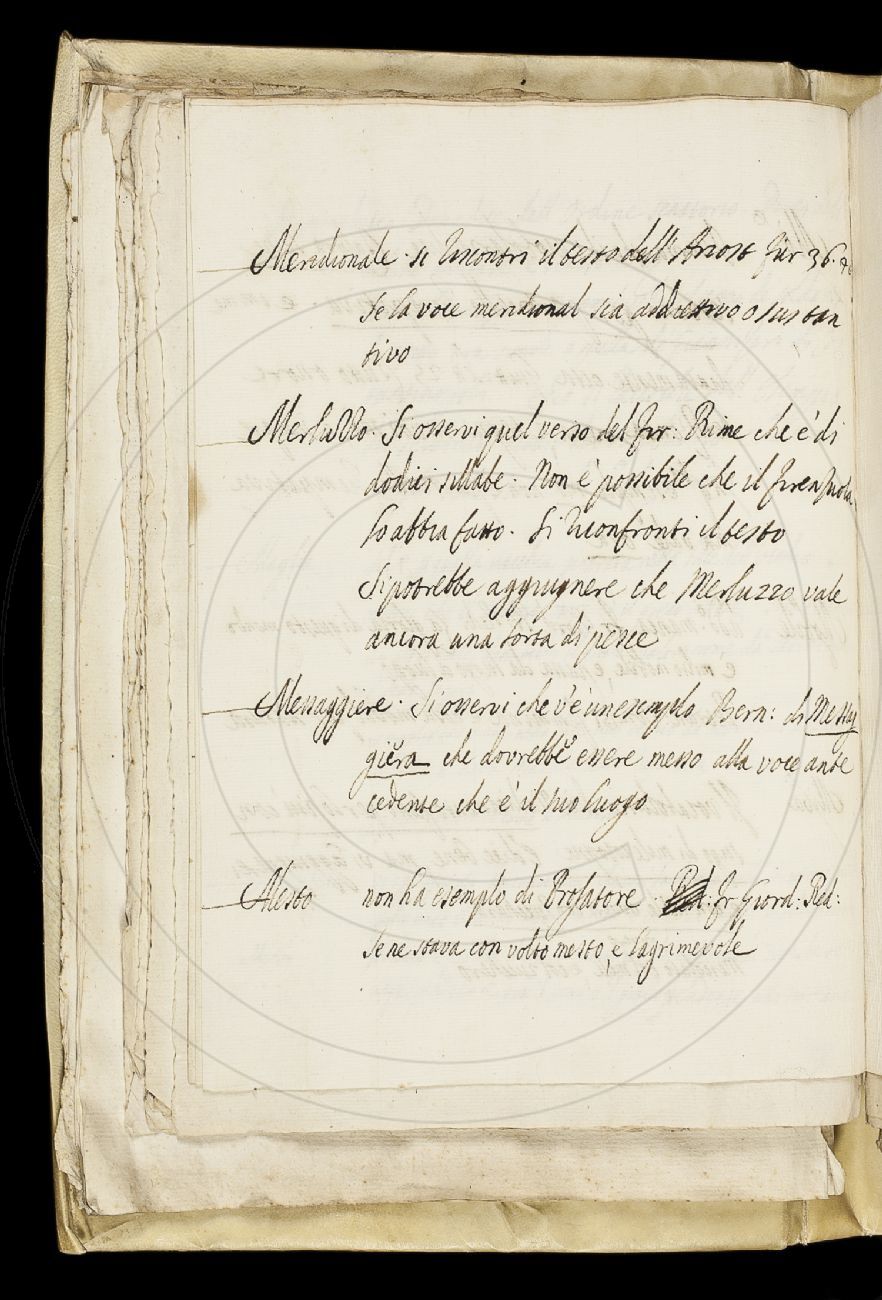 Meridionale. si Riscontri il testo dell' Ariost fur 36.
se la voce meridional sia addiettivo o sustan
tivo
Merluzzo. Si osservi quel verso del fir: Rime che è di
dodici sillabe. Non è possibile che il firenzuola
lo abbia fatto. Si Riconfronti il testo
Si potrebbe aggiugnere che Merluzzo vale
ancora una sorta di pesce
Messaggiere. Si osservi che v'è un esemplo Bern: di Messag
giera che dovrebbe essere messo alla voce ante
cedente che è il suo luogo
Mesto non ha esemplo di Prosatore. fr Giord: Red:
se ne stava con volto mesto, e lagrimevole